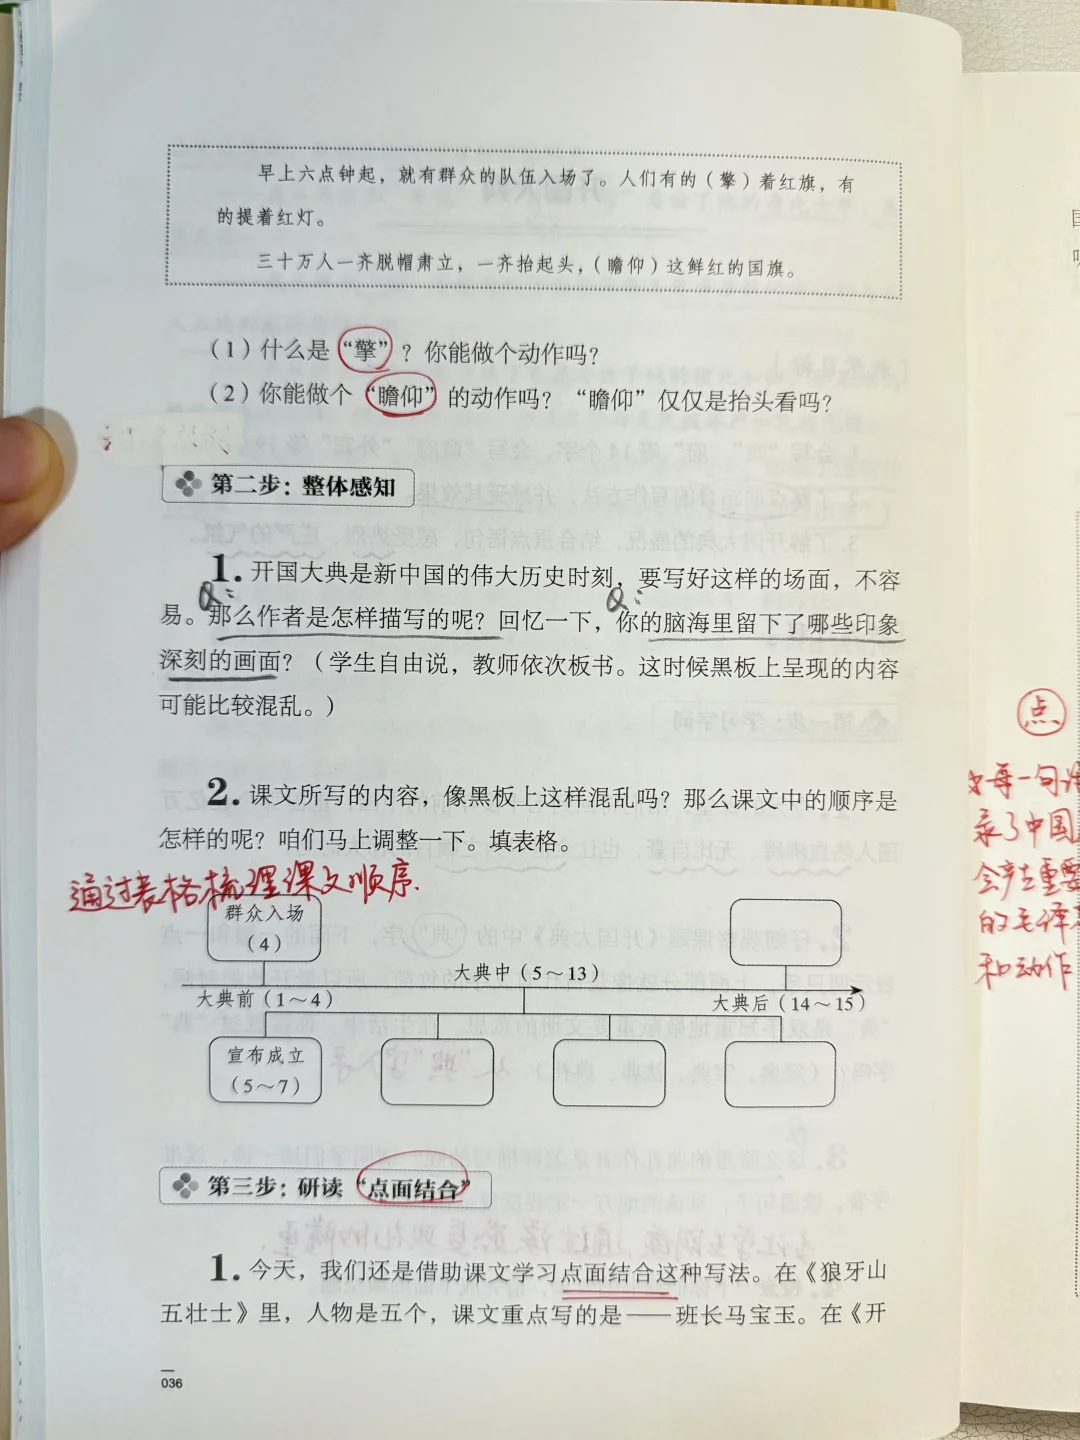 早上六点钟起，就有群众的队伍入场了。人们有的（擎）着红旗，有
的提着红灯。
三十万人一齐脱帽肃立，一齐抬起头，（瞻仰）这鲜红的国旗。
（1）什么是“擎”？你能做个动作吗？
（2）你能做个“瞻仰”的动作吗？“瞻仰”仅仅是抬头看吗？
第二步：整体感知
1. 开国大典是新中国的伟大历史时刻，要写好这样的场面，不容
Q： Q：
易。那么作者是怎样描写的呢？回忆一下，你的脑海里留下了哪些印象
深刻的画面？（学生自由说，教师依次板书。这时候黑板上呈现的内容
可能比较混乱。）
2. 课文所写的内容，像黑板上这样混乱吗？那么课文中的顺序是
怎样的呢？咱们马上调整一下。填表格。
通过表格梳理课文顺序.
群众入场
（4）
大典中（5～13）
大典前（1～4）
大典后（14～15）
宣布成立
（5～7）
第三步：研读“点面结合”
1. 今天，我们还是借助课文学习点面结合这种写法。在《狼牙山
五壮士》里，人物是五个，课文重点写的是——班长马宝玉。在《开
036
点
每一句
录了中国
重要
的毛泽
和动作